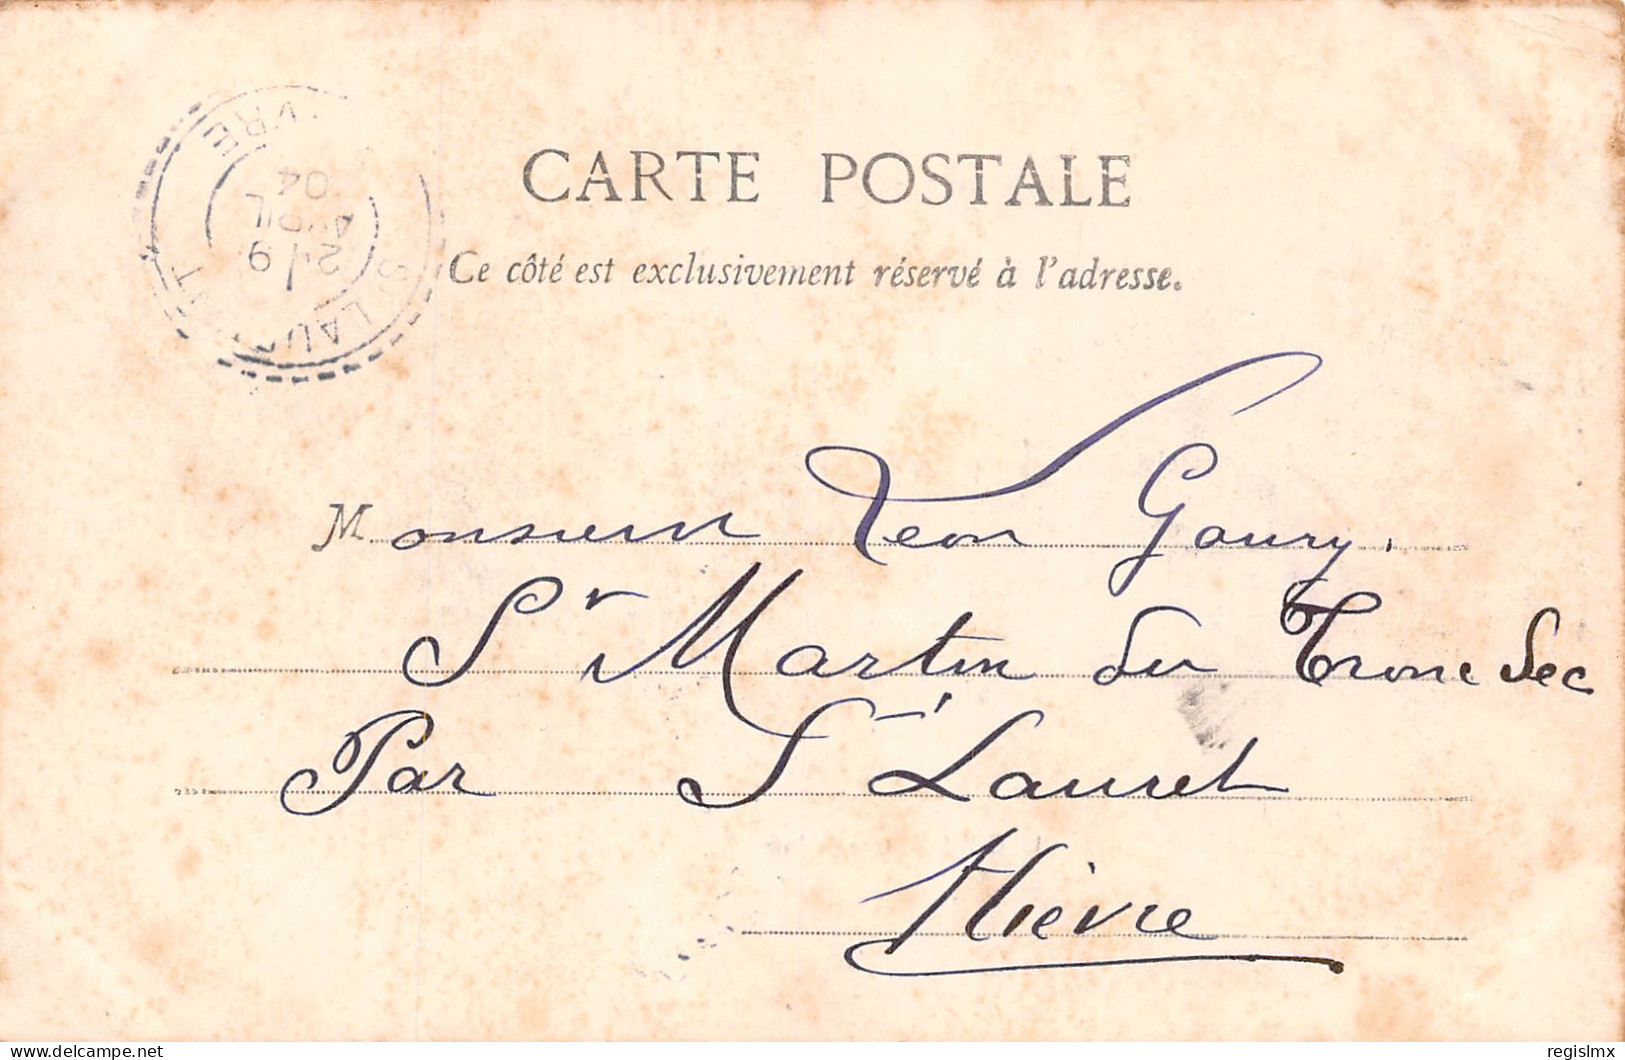 CARTE POSTALE
Ce côté est exclusivement réservé à l'adresse.
ST LAU T
VRE
2 / 9
AVRIL
04
Monsieur Leon Goury.
St Martin du Tronc Sec
Par St Laurent
Nièvre
delcampe.net
regislmx